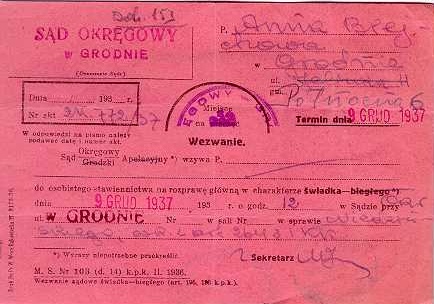 Dol. 153
SĄD OKRĘGOWY
w GRODNIE
(Oznaczenie Sądu)
P. Anna Blej-
chowa
w Grodnie
ul.
gm. Północna 6
Data 193 r.
Nr akt 2K 772/37
Miejsce
na
Termin dnia 9 GRUD 1937
W odpowiedzi na pismo należy
podawać datę i numer akt.
Wezwanie.
Okręgowy
Sąd Grodzki Apelacyjny *) wzywa P.
do osobistego stawiennictwa na rozprawę główną w charakterze świadka—biegłego *)
dnia 9 GRUD 1937 193 r. o godz. 12 w Sądzie przy
ul. w GRODNIE Nr w sprawie
osk. z art. 264 § 1 K.K.
*) Wyrazy niepotrzebne przekreślić.
Sekretarz
M. S. Nr 103 (d. 14) k.p.k. II. 1936.
Wezwanie sądowe świadka—biegłego (art. 195, 196 k.p.k.)